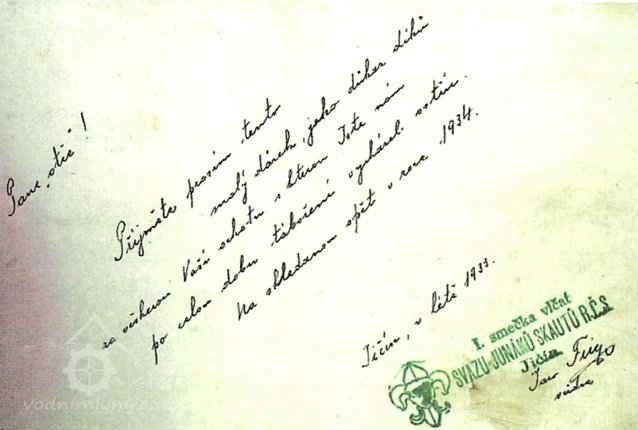 Pane otče!
Přijměte prosím tento
malý dárek, jako důkaz díků
za veškerou Vaši ochotu s kterou Jste nám
po celou dobu táboření vycházel vstříc.
Na shledanou opět v roce 1934.
Jičín, v létě 1933.
I. smečka vlčat
SVAZU JUNÁKŮ SKAUTŮ R.Č.S.
Jičín
vodnimlyny.cz